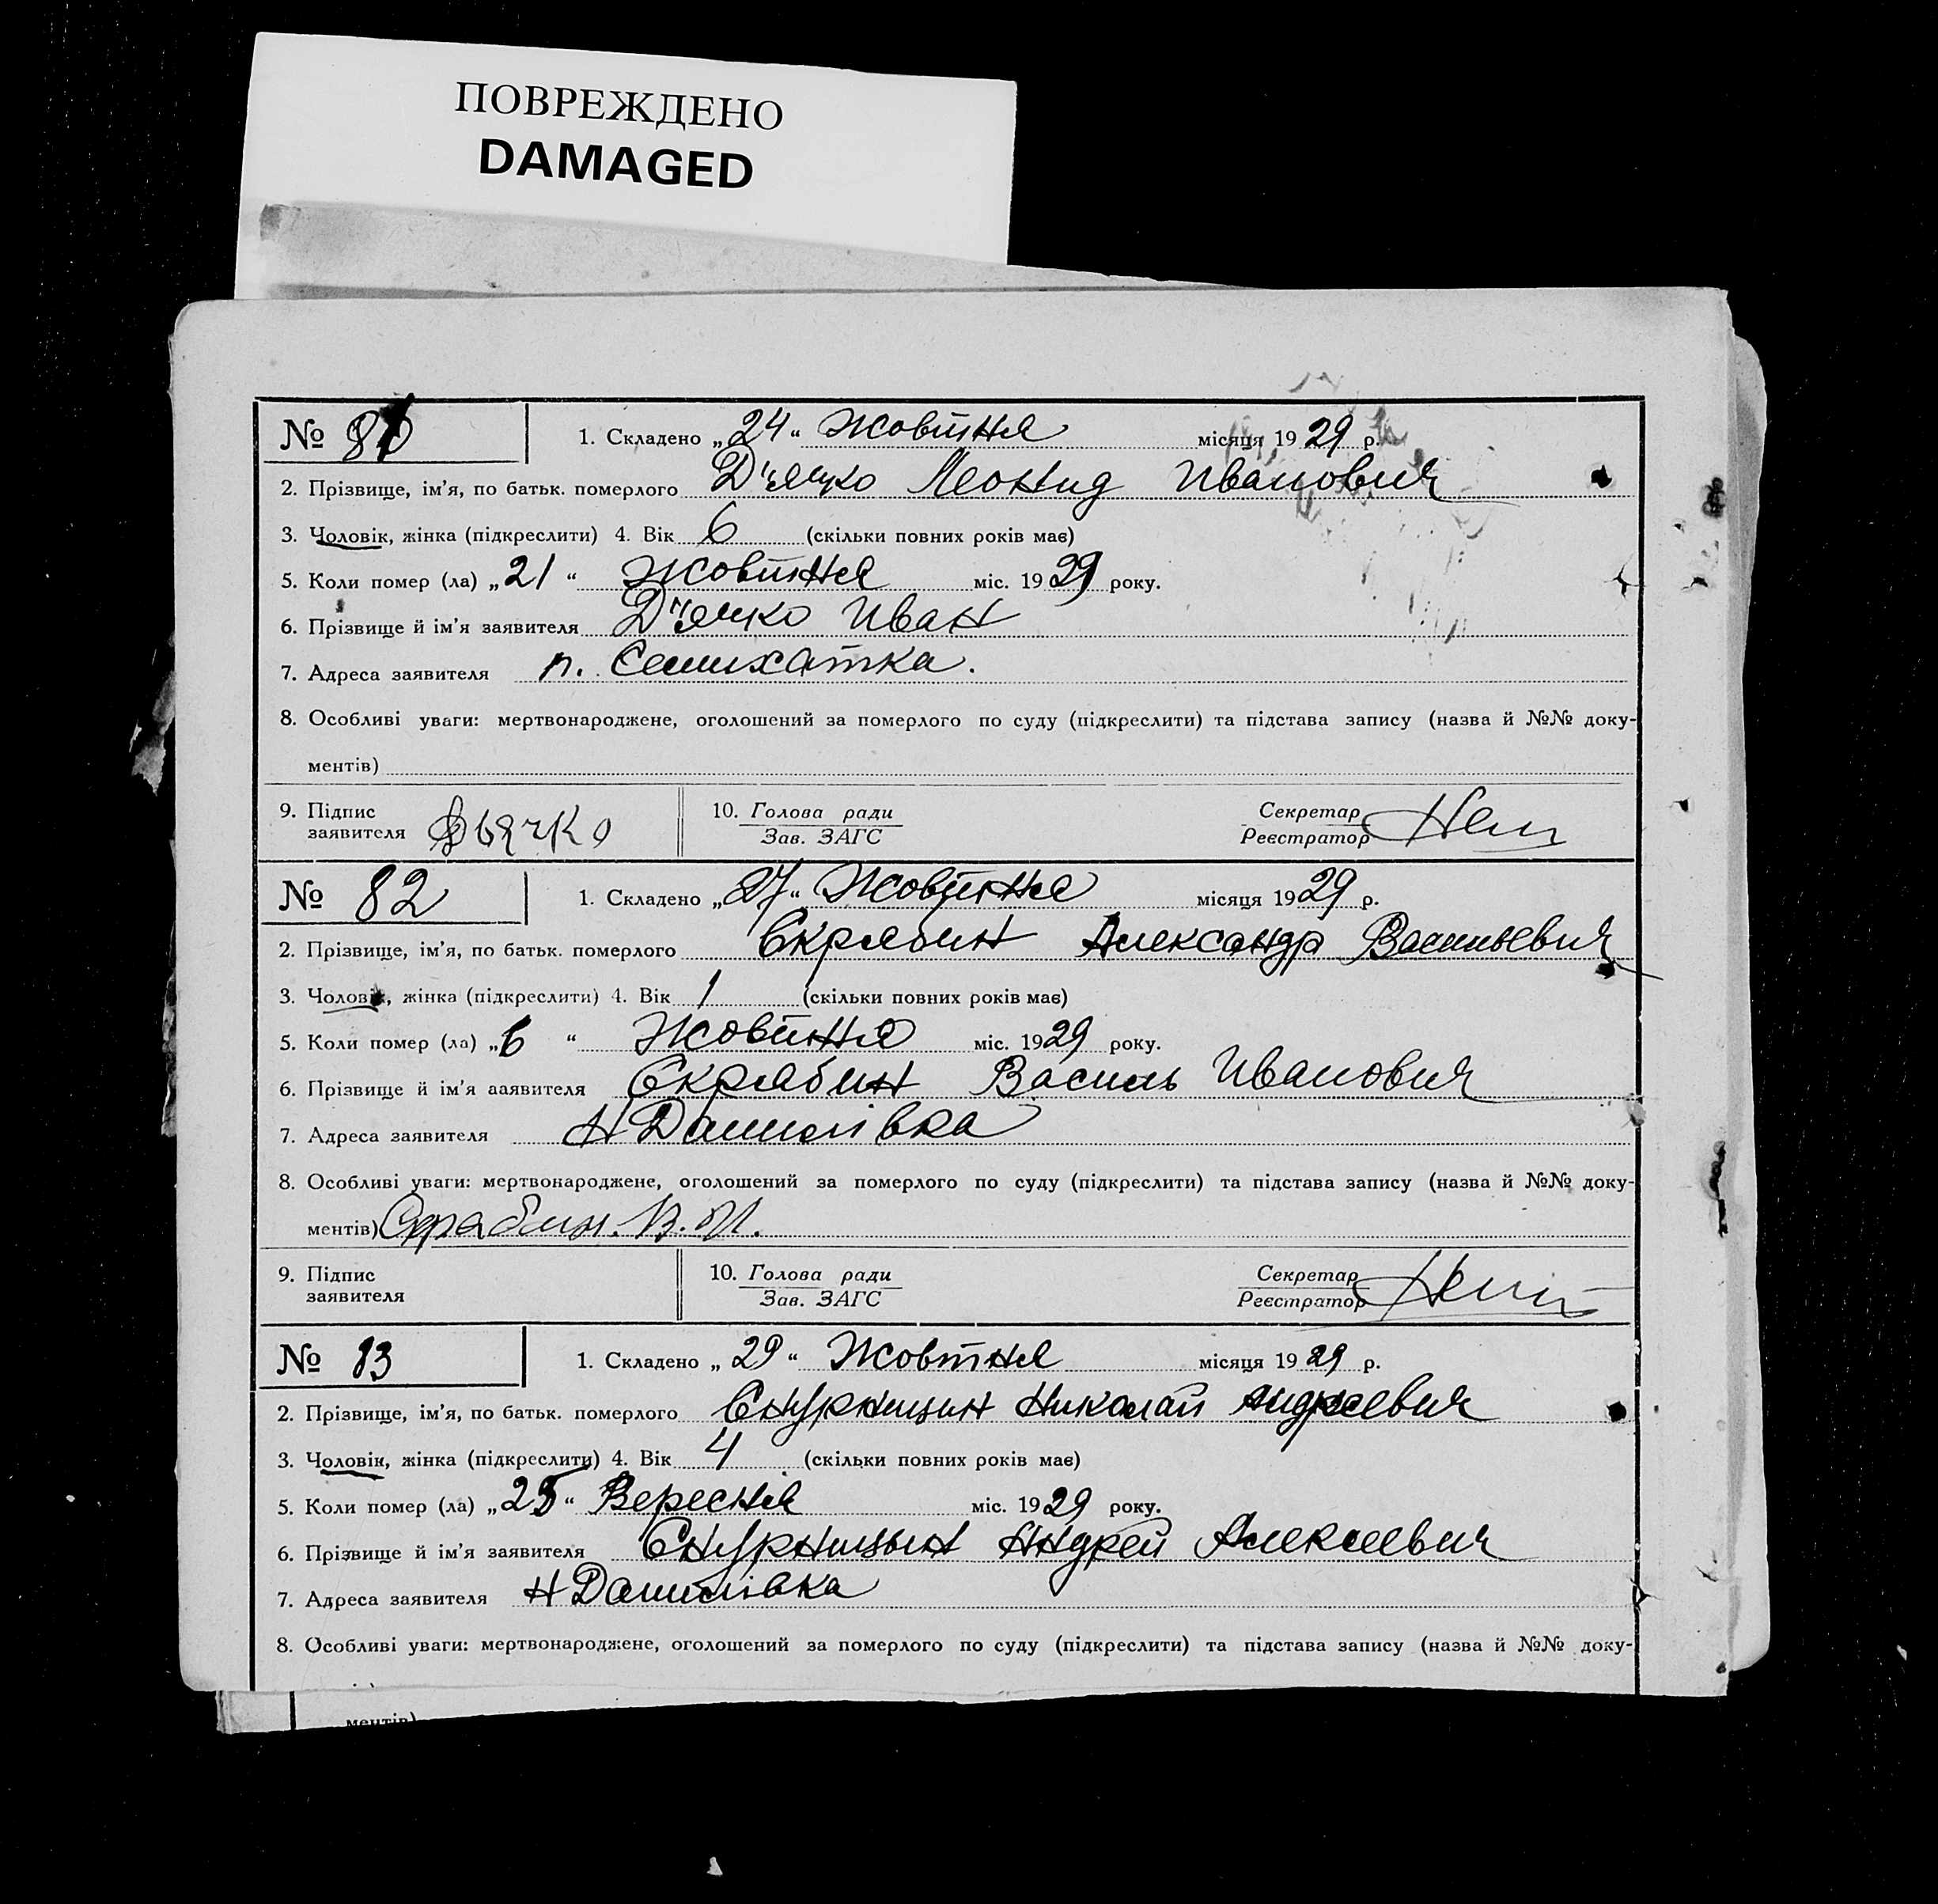 ПОВРЕЖДЕНО
DAMAGED
№ 81
1. Складено „24“ Жовтня місяця 1929 р.
2. Прізвище, ім'я, по батьк. померлого Д'ячко Леонид Иванович
3. Чоловік, жінка (підкреслити) 4. Вік 6 (скільки повних років має)
5. Коли помер (ла) „21“ Жовтня міс. 1929 року.
6. Прізвище й ім'я заявителя Д'ячко Иван
7. Адреса заявителя п. Семихатка.
8. Особливі уваги: мертвонароджене, оголошений за померлого по суду (підкреслити) та підстава запису (назва й №№ доку-
ментів)
9. Підпис заявителя Дьячко
10. Голова ради
Зав. ЗАГС
Секретар
Реєстратор
№ 82
1. Складено „27“ Жовтня місяця 1929 р.
2. Прізвище, ім'я, по батьк. померлого Скрябин Александр Васильевич
3. Чоловік, жінка (підкреслити) 4. Вік 1 (скільки повних років має)
5. Коли помер (ла) „6“ Жовтня міс. 1929 року.
6. Прізвище й ім'я ааявителя Скрябин Василь Иванович
7. Адреса заявителя Н Данилівка
8. Особливі уваги: мертвонароджене, оголошений за померлого по суду (підкреслити) та підстава запису (назва й №№ доку-
ментів) В. И.
9. Підпис заявителя
10. Голова ради
Зав. ЗАГС
Секретар
Реєстратор
№ 83
1. Складено „29“ Жовтня місяця 1929 р.
2. Прізвище, ім'я, по батьк. померлого Снурницин Николай Андреевич
3. Чоловік, жінка (підкреслити) 4. Вік 4 (скільки повних років має)
5. Коли помер (ла) „25“ Вересня міс. 1929 року.
6. Прізвище й ім'я заявителя Снурницын Андрей Алексеевич
7. Адреса заявителя Н Данилівка
8. Особливі уваги: мертвонароджене, оголошений за померлого по суду (підкреслити) та підстава запису (назва й №№ доку-
ментів)